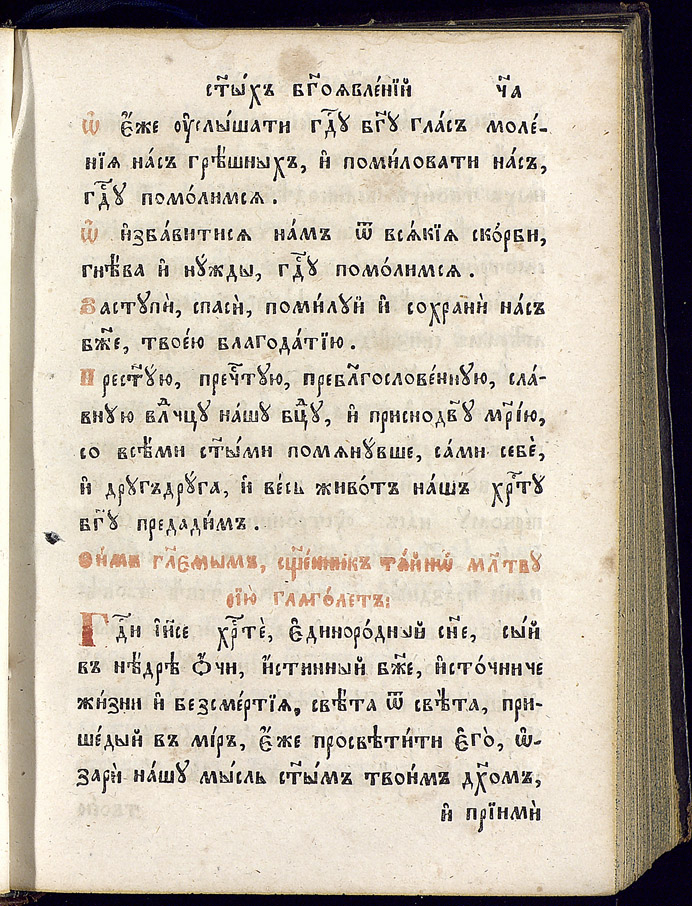 ст҃ы́хъ бг҃оявле́нїй ч҃а
Ѿ є҆́же ᲂу҆слы́шати гд҇ꙋ бг҃ꙋ гла́съ моле́-
нїѧ на́съ грѣ́шныхъ, и҆ поми́ловати на́съ,
гд҇ꙋ помо́лимсѧ.
Ѽ и҆зба́витисѧ на́мъ ѿ всѧ́кїѧ ско́рби,
гнѣ́ва и҆ нꙋ́жды, гд҇ꙋ помо́лимсѧ.
Застꙋпѝ, спасѝ, поми́лꙋй и҆ сохранѝ на́съ
бж҃е, твоє́ю благода́тїю.
Прест҃ꙋ́ю, пречⷭ҇тꙋю, пребл҃гослове́ннꙋю, сла́-
внꙋю влⷣчцꙋ на́шꙋ бцⷣꙋ, и҆ приснодв҃ꙋ мр҃і́ю,
со всѣ́ми ст҃ы́ми помѧнꙋ́вше, са́ми себѐ,
и҆ дрꙋгъдрꙋ́га, и҆ ве́сь живо́тъ на́шъ хрⷭ҇тꙋ
бг҃ꙋ предади́мъ.
Си̑мъ гл҃ємымъ, сщ҃е́нникъ та́йнѡ мл҃твꙋ
сїю̀ глаго́летъ:
Гд҇и і҆и҃се хрⷭ҇тѐ, є҆диноро́дный сн҃е, сы́й
въ нѣ́дрѣ ѻ҆́ч҃и, и҆́стинный бж҃е, и҆сто́чниче
жи́зни и҆ безсме́ртїѧ, свѣ́та ѿ свѣ́та, при-
ше́дый въ мі́ръ, є҆́же просвѣти́ти є҆го̀, ѡ҆-
зарѝ на́шꙋ мы́сль ст҃ы́мъ твои́мъ дх҃омъ,
и҆ прїимѝ